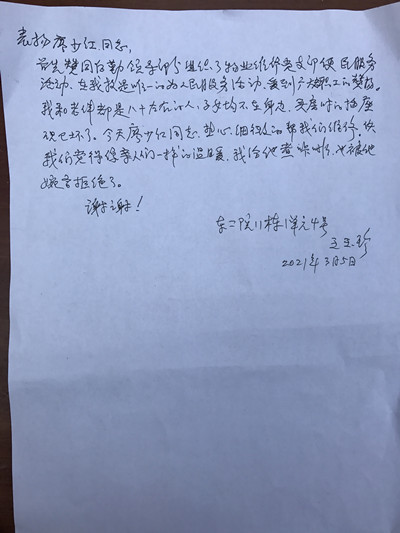 表扬廖少红同志,
首先赞同后勤领导部分组织了物业维修党支部便民服务
活动,在我校是唯一的为人民服务活动,受到广大职工的赞扬。
我和老伴都是八十左右的人,子女均不在身边,
坏了。今天廖少红同志,热心、细微的帮我们维修,使
我们觉得像亲人们一样的温暖,我给他煮咖啡,也被他
婉言拒绝了。
谢谢!
东二院11栋1单元4号
王玉珍
2021年3月5日